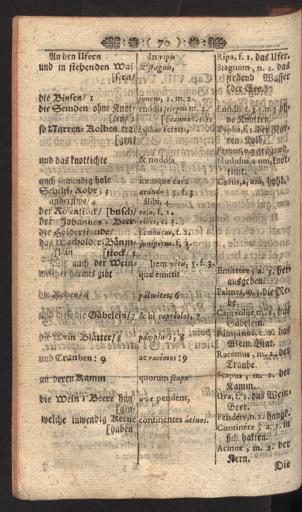 ( 70 )
An den Ufern
und in stehenden Was
[sern/
die Binsen/ 1
die Semden ohne Knot
[en/ 2
so Narren-Kolben tra
[gen/
und das knotichte
auch inwendig hole
Schilff Rohr; 3
anderswo/ 4
der Rosenstock/ [busch/
der Johannes-Beer
die Holderstaude/
das Wacholder Bäum-
lein [stock/
auch der Wein-
welcher heraus gibt
die Reben/ 6
und dieselbe Gäbelein/ 7
die Wein Blätter/ 8
und Trauben: 9
an deren Kamm
die Wein-Beere han
[gen/
welche inwendig Kerne
[haben
In ripa
& stagnis,
juncus, 1. m. 2.
enodis scirpus m. 2.
typhas ferens,
& nodosa
intusque cava
arundo: 3
alibi, 4
rosa, f. 1.
ribes,
sambucus, f. 2.
juniperus, f. 3.
Item vitis, 5. f. 3.
quæ emittit
palmites, 6
& hi capreolos, 7
pampinos, 8
ac racemos: 9
quorum scapo
uvæ pendent,
continentes acinos.
Ripa, f. 1. das Ufer.
Stagnum, n. 2. das
stehend Wasser
(der See.)
Enodis, c. 3. e. n. 3. oh-
ne Knotten.
Typha, f. 1. der Nar-
ren-Kolb.
Ferens, o. 3. tragend.
Nodosus, a. um, knot-
ticht.
Cavus, a, um, hohl.
Emittere, a. 3. her-
ausgeben.
Palmes, m. 3. die Re-
be.
Capreolus, m. 2. das
Gäbelein.
Pampinus, c. 2. das
Wein-Blat.
Racemus, m. 2. der
Traube.
Scapus, m. 2. der
Kamm.
Uva, f. 1. das Wein-
Beer.
Pendere, n. 2. hangen.
Continere, a. 2. in
sich halten.
Acinus, m. 2. der
Kern.
Die